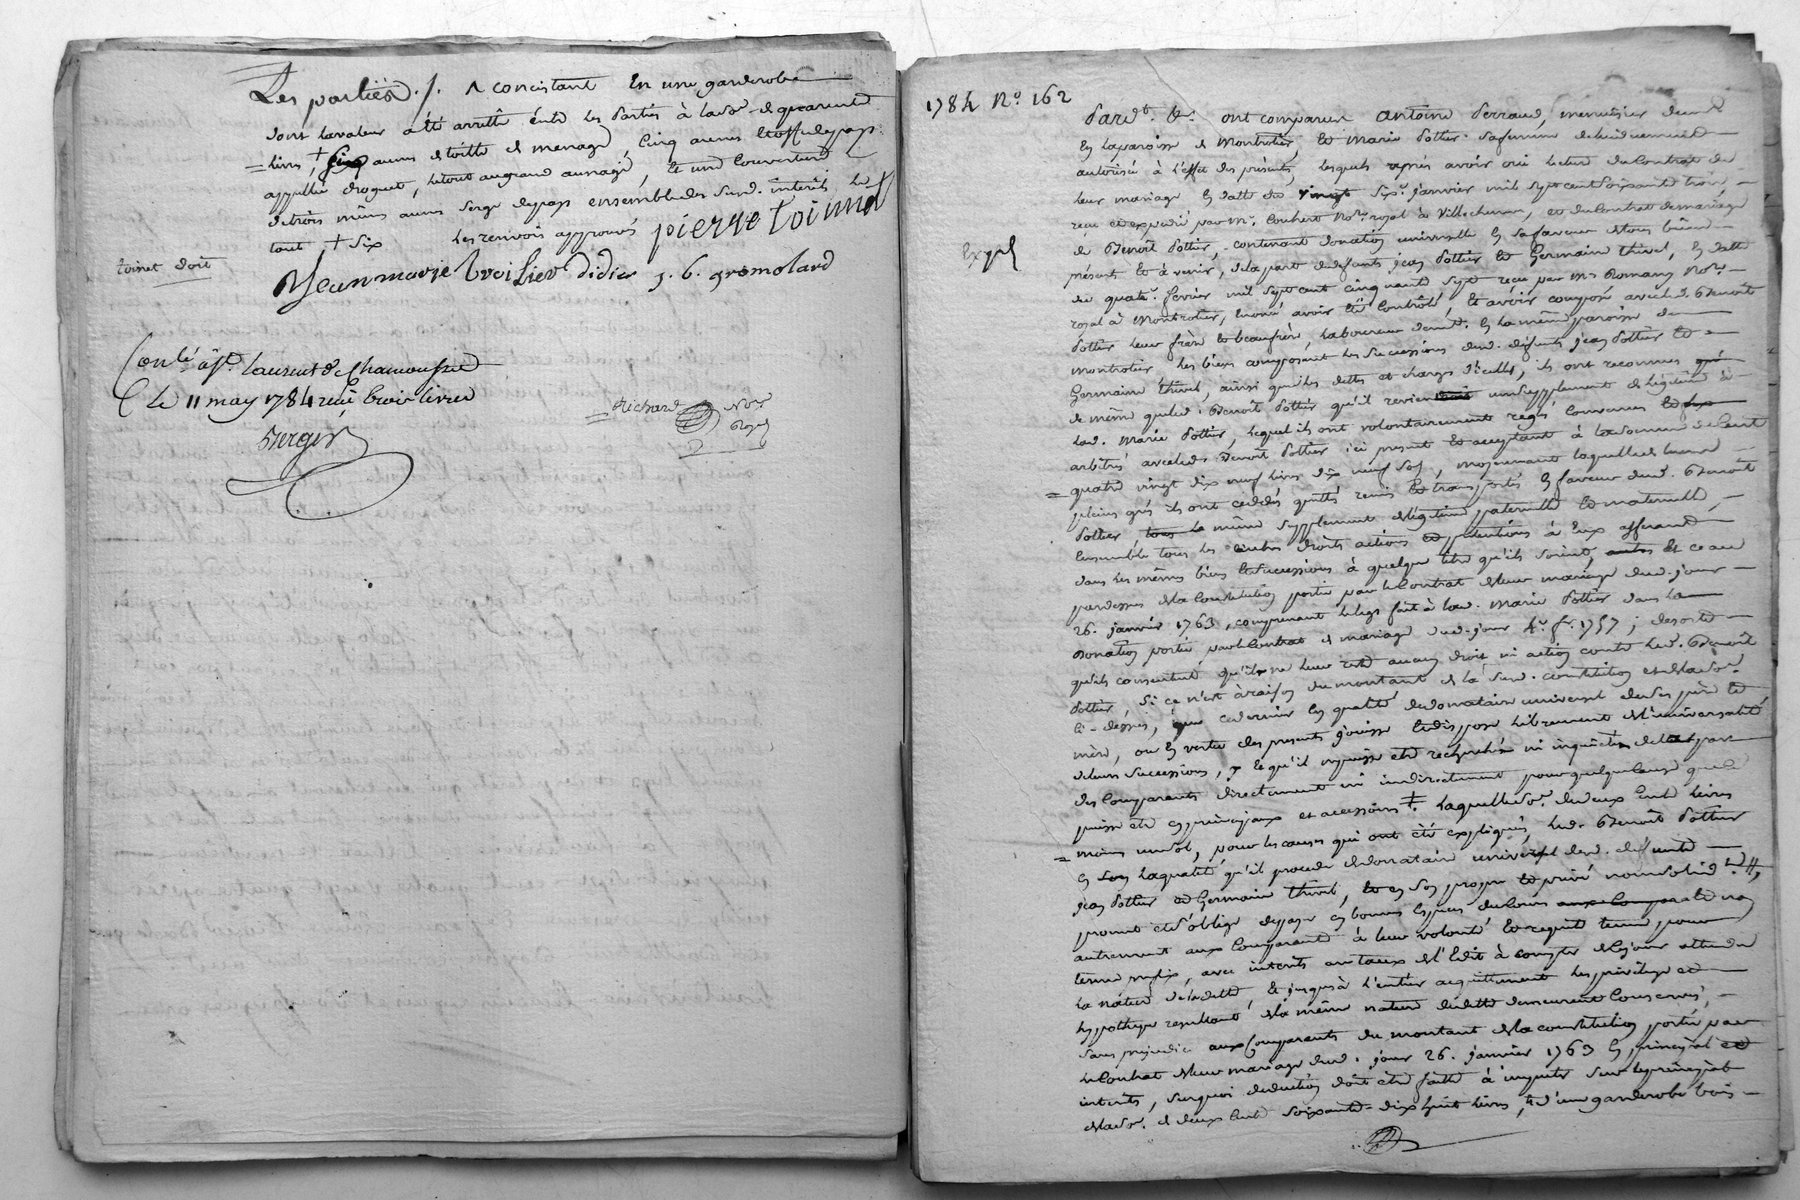 Les parties ./. A concistant en une garderobe
dont la valeur a été arrettée entre les parties à la so.e de quarente
livres, + aunes de toille de menage, cinq aunes étoffe du pays
appellée droguet, le tout aunage, et une couverture
de trois mêmes aunes serge du pays ensemble des sus d. interêts le
tout + six les renvois approuvés pierre toinnet
toinet doit
Jean marie troilier didier j. b. gromolard
Con.lé à S.t Laurent de Chamousset
Le 11 may 1784 reçu trois livres
Berger
Richard No.re Royal
1784 N.o 162
Pard.t &c. ont comparu antoine Perraud, menuisier dem.t
en la paroisse de Montrotier, et marie Pottier sa femme de lui duement
autorisée à l'effet des présentes lesquels après avoir oui lecture du contrat de
leur mariage en datte du vingt six.e janvier mil sept cent soixante trois,
recu et expedié par M.e Coubert no.re royal à Villechenève, et du contrat de mariage
Expé
de Benoît Pottier, contenant donation universelle en sa faveur de tous biens
présents et à venir, de la part de defunts jean Pottier et Germaine thivel, en datte
du quatr.e fevrier mil sept cent cinquante sept recu par M.e Romany no.re
royal à Montrotier, comme avoir été controllé, et avoir composé avec led. Benoît
Pottier leur frère et beaufrère, laboureur dem.t en la même paroisse de
Montrotier les biens composant les successions desd. defunts jean Pottier et
Germaine thivel, ainsi que les dettes et charges d'icelles, ils ont reconnus
de même que led. Benoît Pottier qu'il revient un supplement de légitime à
lad. Marie Pottier, lequel ils ont volontairement reglé, convenus et
arbitré avec led. Benoît Pottier ici present et acceptant à la somme de cent
quatre vingt dix neuf livres dix neuf sols, moyennant laquelle de leurs
pleins grés ils ont cédés quittés remis et transportés en faveur dud. Benoît
Pottier, le même supplement de légitime paternelle et maternelle,
ensemble tous les autres droits actions et prétentions à eux afferants
dans les mêmes biens et successions à quelque titre qu'ils soient, et ce au
pardessus de la constitution portée par le contrat de leur mariage dud. jour
26. janvier 1763, comprenant le legs fait à lad. Marie Pottier dans la
Donation portée par le contrat de mariage dud. jour 4.e f.r 1757; de sorte
qu'ils consentent qu'il ne leur reste aucun droit ni action contre led. Benoît
Pottier, si ce n'est à raison du montant de la susd. constitution et de la so.e
ci-dessus, que ce dernier en qualité de donataire universel de ses père et
mère, ou en vertu des presents jouisse et dispose librement de l'universalité
de leurs successions, et qu'il ne puisse être recherché ni inquiété de la part
des comparants directement ni indirectement pour quelque cause que ce
puisse être en principaux et accessoires +. Laquelle so.e de deux cents livres
moins un sol, pour les causes qui ont été expliquées, led. Benoît Pottier
en la qualité qu'il procède de donataire universel desd. defunts
jean Pottier et Germaine thivel, et en son propre et privé nom solid.t
promet et s'oblige de payer en bonnes especes de cours non
autrement aux comparants à leur volonté et requête tenue pour
terme prefix, avec interets au taux de l'Edit à compter de ce jour attendu
la nature de la dette et jusqu'à l'entier acquittement les privilege et
hypotheque resultant de la même nature de dette demeurent conservés,
sans prejudice aux comparants du montant de la constitution portée par
le contrat de leur mariage dud. jour 26. janvier 1763 en principal et
interets, sur quoi deduction doit être faitte à imputer sur le principal
de la so.e de deux cents soixante-dix huit livres, et d'une garderobe bois